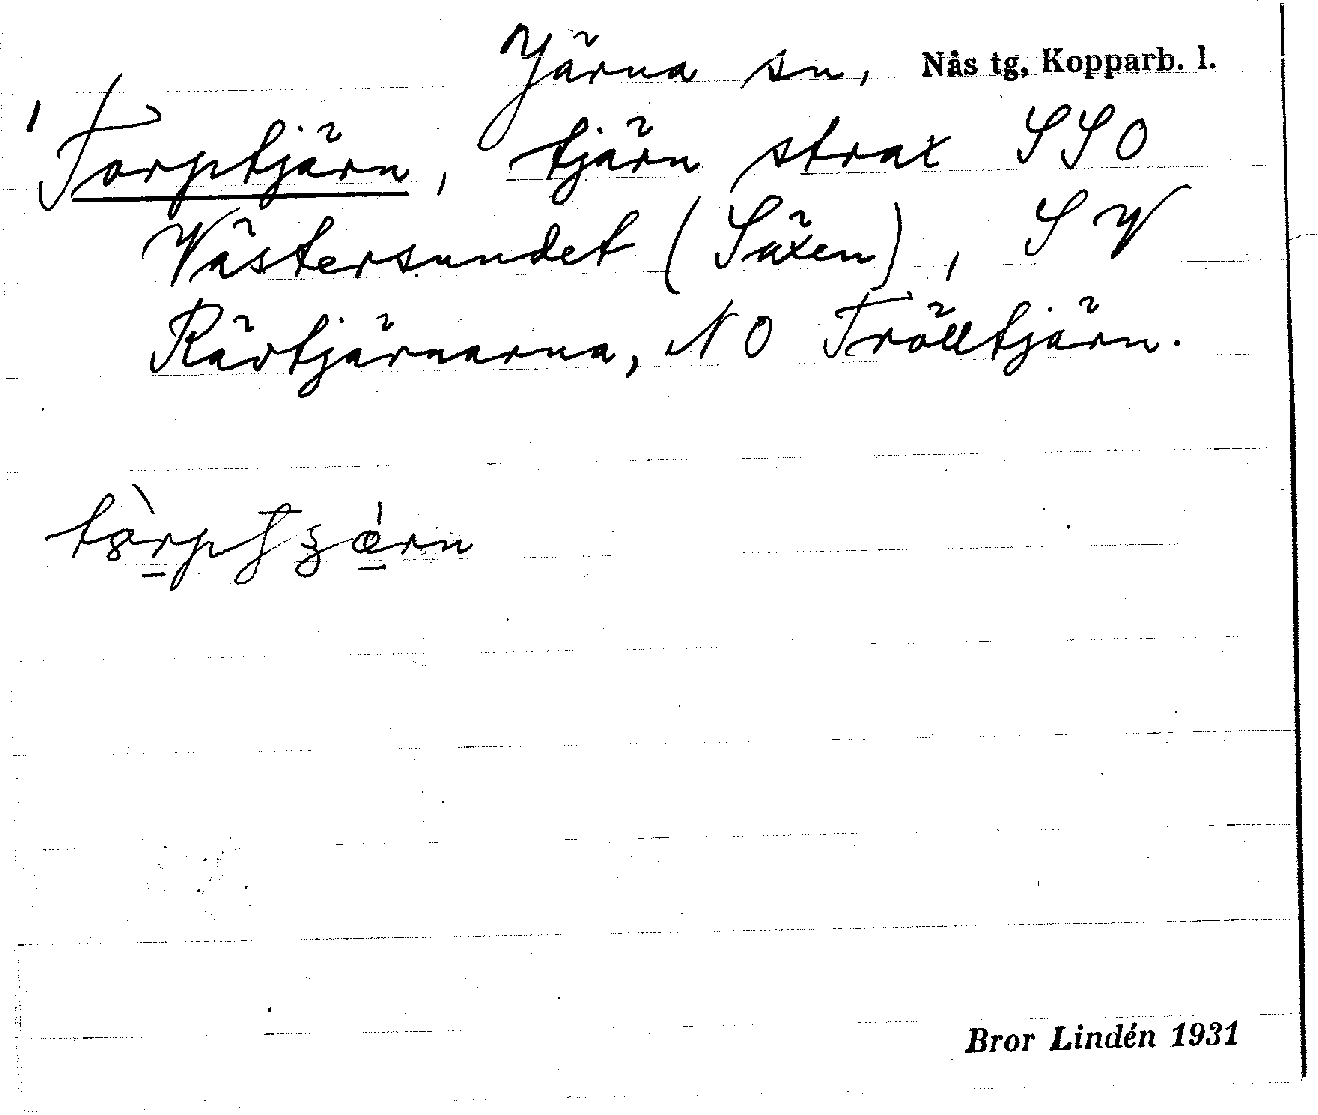 Järna sn, Nås tg, Kopparb. l.
Torptjärn, tjärn strax SSO
Västersundet (Säxen), SV
Rävtjärnarna, NO Trölltjärn.
Bror Lindén 1931